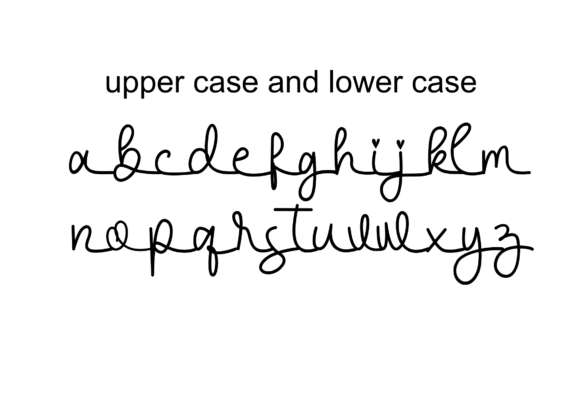 upper case and lower case
abcdefghijklm
nopqrstuvwxyz